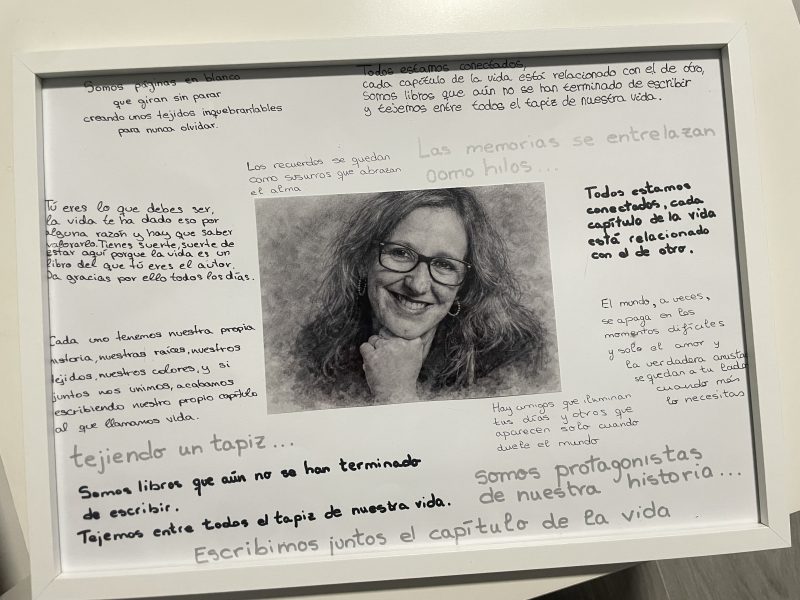 Somos páginas en blanco
que giran sin parar
creando unos tejidos inquebrantables
para nunca olvidar.
Todos estamos conectados,
cada capítulo de la vida está relacionado con el de otro,
Somos libros que aún no se han terminado de escribir
y tejemos entre todos el tapiz de nuestra vida.
Las memorias se entrelazan
como hilos...
Los recuerdos se quedan
como susurros que abrazan
el alma
Tú eres lo que debes ser,
la vida te ha dado eso por
alguna razón y hay que saber
valorarlo. Tienes suerte, suerte de
estar aquí porque la vida es un
libro del que tú eres el autor.
Da gracias por ello todos los días.
Todos estamos
conectados, cada
capítulo de la vida
está relacionado
con el de otro.
Cada uno tenemos nuestra propia
historia, nuestras raíces, nuestros
tejidos, nuestros colores, y si
juntos nos unimos, acabamos
escribiendo nuestro propio capítulo
al que llamamos vida.
El mundo, a veces,
se apaga en los
momentos difíciles
y solo el amor y
la verdadera amistad
se quedan a tu lado
cuando más
lo necesitas
Hay amigos que iluminan
tus días y otros que
aparecen solo cuando
duele el mundo
tejiendo un tapiz...
Somos libros que aún no se han terminado
de escribir.
Tejemos entre todos el tapiz de nuestra vida.
somos protagonistas
de nuestra historia...
Escribimos juntos el capítulo de la vida